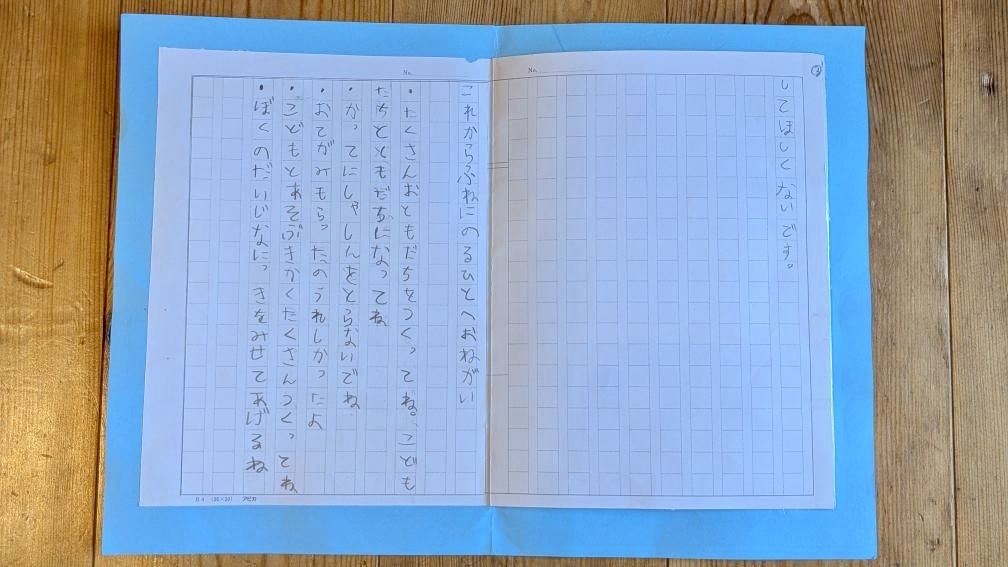 ③
してほしくないです。
No.
No.
これからふねにのるひとへおねがい
・たくさんおともだちをつくってね。、こども
たちとともだちになってね
・かってにしゃしんをとらないでね。
・おてがみもらったのうれしかったよ
・こどもとあそぶきかくたくさんつくってね。
・ぼくのだいじなにっきをみせてあげるね
B4 (20×20) アピカ